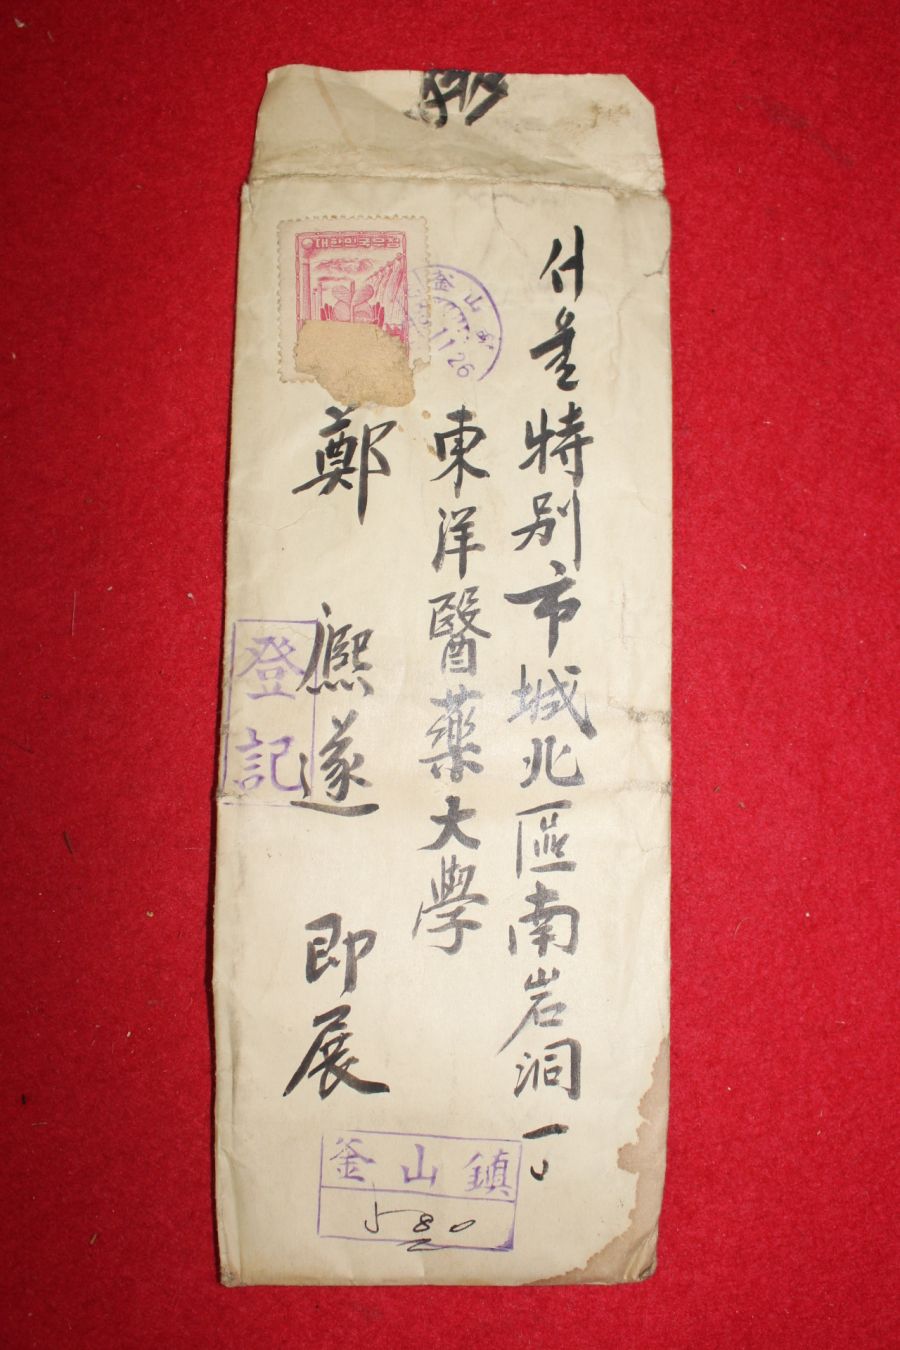 서울特別市城北區南岩洞一
東洋醫藥大學
鄭熈遂 即展
대한민국우표
釜山
11.26
登記
釜山鎮
580